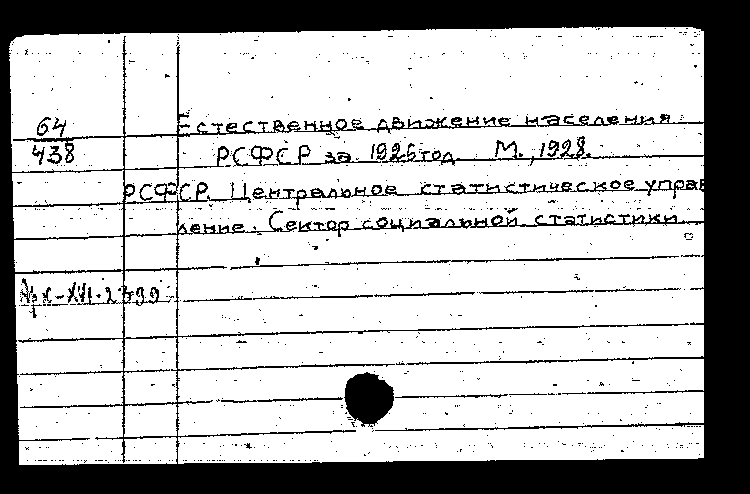 64
438
Естественное движение населения
РСФСР за 1926 год. М., 1928.
РСФСР. Центральное статистическое управ
ление. Сектор социальной статистики.
Арх-XVI-2399